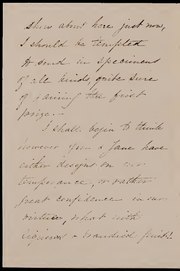 shows about here just now,
I should be tempted
to send in specimens
of all kinds, quite sure
of gaining the first
prize.
I shall begin to think
however you & Jane have
either designs on our
temperance, or rather
great confidence in our
virtue, what with
& brandied fruit!